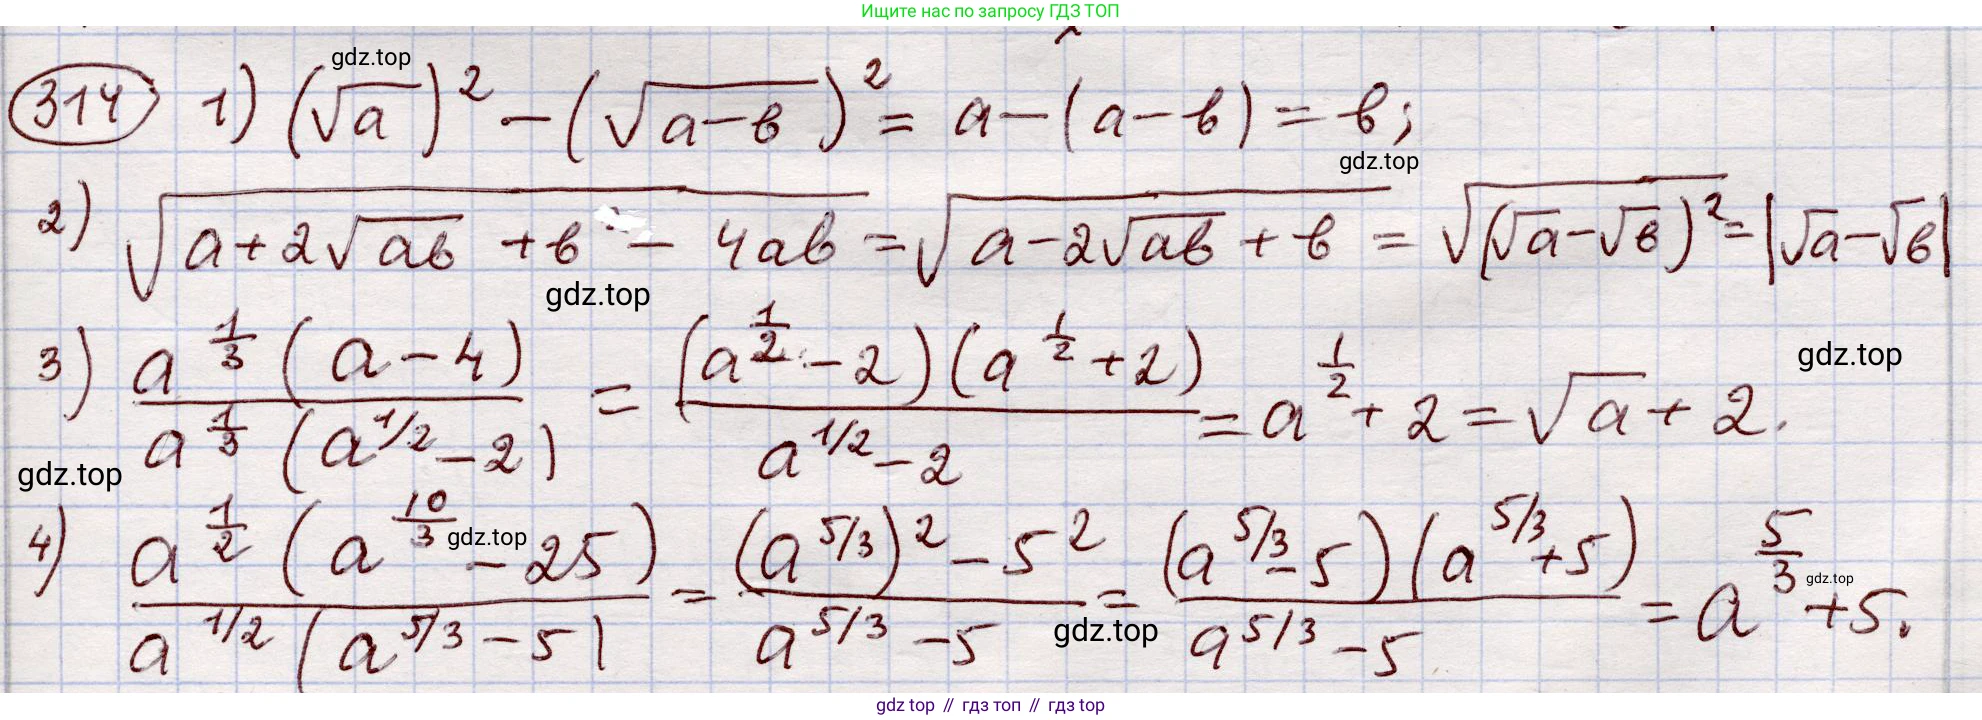 Ищите нас по запросу ГДЗ ТОП
gdz.top
314 1) (√a)² − (√(a−в))² = a − (a−в) = в;
gdz.top
2) √(a+2√(aв) +в − 4aв) = √(a−2√(aв) + в) = √((√a−√в)²) = |√a−√в|
gdz.top
3) a^(1/3) (a−4) / a^(1/3) (a^(1/2) −2) = (a^(1/2) −2)(a^(1/2) +2) / a^(1/2) −2 = a^(1/2) + 2 = √a + 2.
gdz.top
gdz.top
4) a^(1/2) (a^(10/3) − 25) / a^(1/2) (a^(5/3) −5) = (a^(5/3))² − 5² / a^(5/3) −5 = (a^(5/3) −5)(a^(5/3) +5) / a^(5/3) −5 = a^(5/3) +5.
gdz.top
gdz.top
gdz.top
gdz top // гдз топ // gdz top